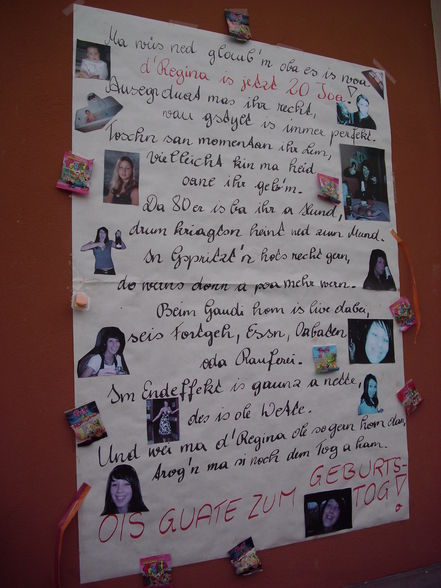 Ma wüs ned glaub'm oba es is woa
d'Regina is jetzt 20 Joa!
Ausegruat mas ihr recht,
wau gstylt is immer perfekt.
Toschn san momentan ihr Lem,
vielleicht kin ma heid
oane ihr geb'm.
Da 80er is ba ihr a Hund,
drum kriagton heint ned zum Mund.
An Gspritzt'n hots recht gern,
do wans donn a poa mehr wern.
Beim Gaudi hom is live dabei,
seis Fortgeh, Essn, Oabaten
oda Rauferei.
Im Endeffekt is gaunz a nette,
des is ole Wette.
Und wei ma d'Regina ole so gern hom dan,
drog'n ma si noch dem Tog a ham.
OIS GUATE ZUM GEBURTS-
TOG!